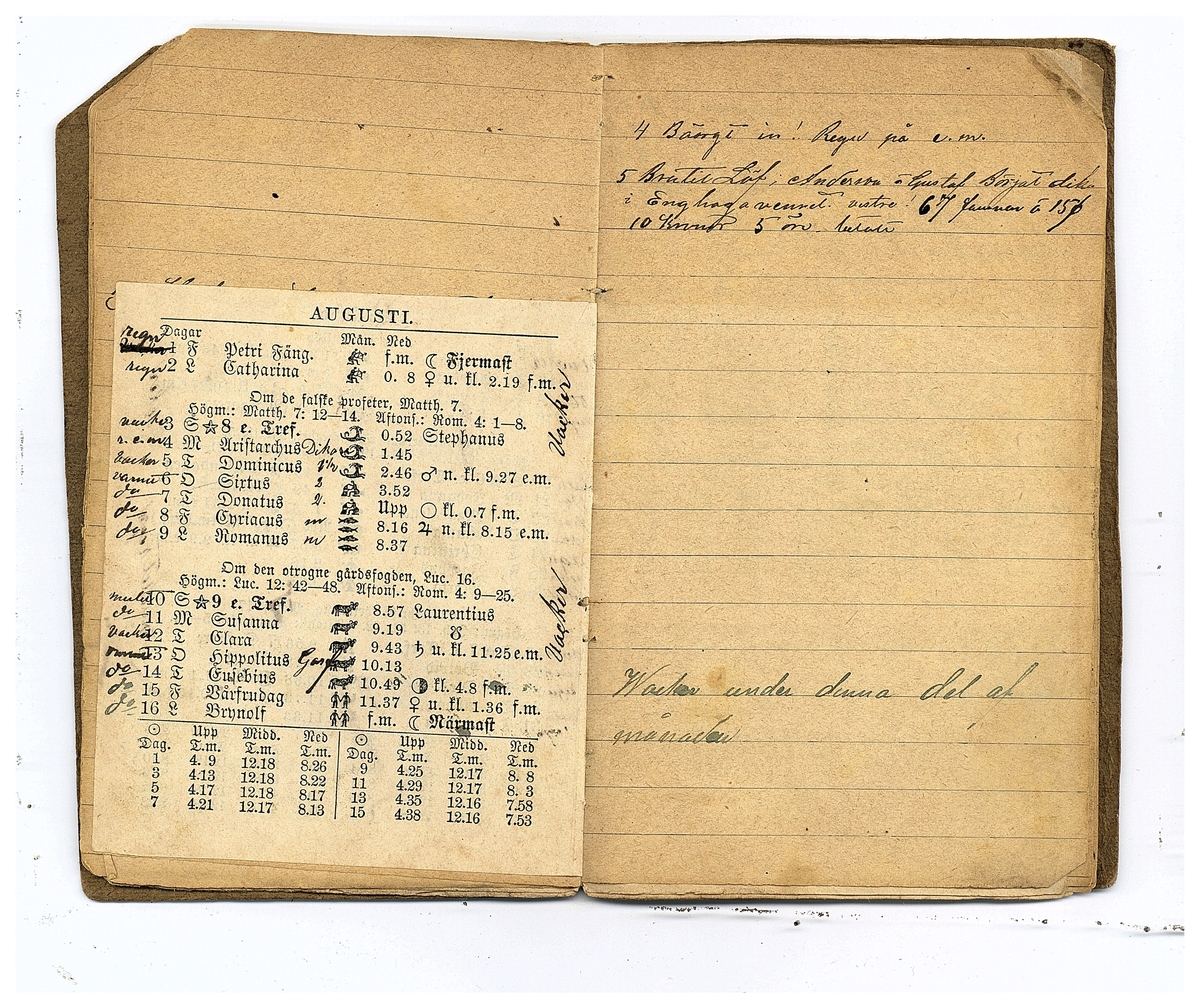 AUGUSTI.
regn Dagar Mån. Ned
1 F Petri Fäng. f.m. ☾ Fjermast
regn 2 L Catharina 0. 8 ♀ u. kl. 2.19 f.m.
Om de falske profeter, Matth. 7.
Högm.: Matth. 7: 12—14. Aftons.: Rom. 4: 1—8.
vacker 3 S ☆ 8 e. Tref. 0.52 Stephanus
r. e.m. 4 M Aristarchus Dika 1.45
vacker 5 T Dominicus 2.46 ♂ n. kl. 9.27 e.m.
varmt 6 O Sixtus 2 3.52
do 7 T Donatus 2. Upp ○ kl. 0.7 f.m.
do 8 F Cyriacus m 8.16 ♃ n. kl. 8.15 e.m.
do 9 L Romanus m 8.37
Vacker
Om den otrogne gårdsfogden, Luc. 16.
Högm.: Luc. 12: 42—48. Aftons.: Rom. 4: 9—25.
mulet 10 S ☆ 9 e. Tref. 8.57 Laurentius
do 11 M Susanna 9.19 ☋
vacker 12 T Clara 9.43 ♄ u. kl. 11.25 e.m.
13 O Hippolitus 10.13
do 14 T Eusebius 10.49 ◑ kl. 4.8 f.m.
do 15 F Vårfrudag 11.37 ♀ u. kl. 1.36 f.m.
do 16 L Brynolf f.m. ☾ Närmast
Vacker
☉ Upp Midd. Ned ☉ Upp Midd. Ned
Dag. T.m. T.m. T.m. Dag. T.m. T.m. T.m.
1 4. 9 12.18 8.26 9 4.25 12.17 8. 8
3 4.13 12.18 8.22 11 4.29 12.17 8. 3
5 4.17 12.18 8.17 13 4.35 12.16 7.58
7 4.21 12.17 8.13 15 4.38 12.16 7.53
4 Bärgt in! Regn på e.m.
5 Brutet Löf; Anderson o Gustaf Börjat dika
i Enghaga vestra! 67 famnar à 15
10 Kronor 5 öre betalt
Vacker under denna del af
månaden